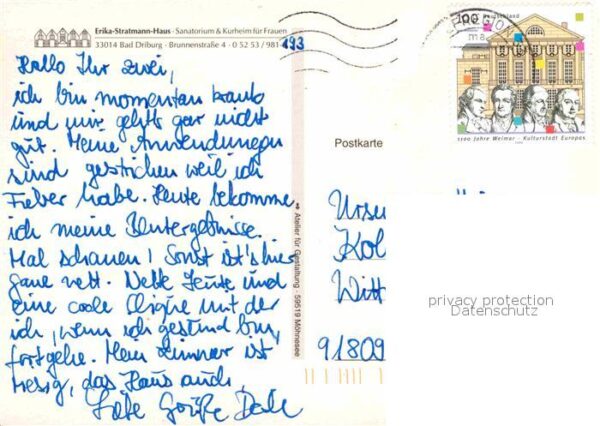 Erika-Stratmann-Haus · Sanatorium & Kurheim für Frauen
33014 Bad Driburg · Brunnenstraße 4 · 0 52 53 / 981-
493
Hallo Ihr zwei,
ich bin momentan krank
und mir gehts gar nicht
gut. Meine Anwendungen
sind gestrichen weil ich
Fieber habe. Heute bekomme
ich meine Blutergebnisse.
Mal schauen! Sonst ist's hier
ganz nett. Nette Leute und
eine coole Clique mit der
ich, wenn ich gesund bin,
fortgehe. Mein Zimmer ist
riesig, das Haus auch.
Liebe Grüße
Atelier für Gestaltung · 59519 Möhnesee
100 Deutschland
1100 Jahre Weimar Kulturstadt Europas
Postkarte
Ursu
Kol
Witt
91809
privacy protection
Datenschutz